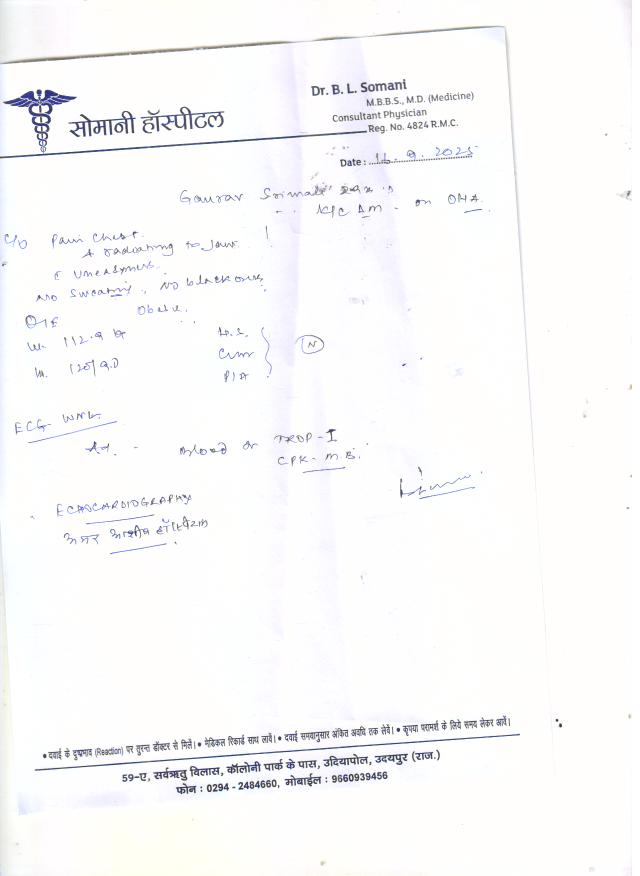 सोमानी हॉस्पीटल
Dr. B. L. Somani
M.B.B.S., M.D. (Medicine)
Consultant Physician
Reg. No. 4824 R.M.C.
Date : 16. 9. 2025
Gaurav Srimali
K/C DM - on OHA.
C/O Pain Chest.
radiating to Jaw.
c Uneasyness.
No Sweating, No blackouts
O/E Obese.
Wt. 112.9
120/90
H.S.
P/A
N
ECG WNL.
Ad. - Blood for TROP-I
CPK-M.B.
ECHOCARDIOGRAPHY
अमर आशीष हॉस्पिटल
• दवाई के दुष्प्रभाव (Reaction) पर तुरन्त डॉक्टर से मिलें। • मेडिकल रिकार्ड साथ लावें। • दवाई समयानुसार अंकित अवधि तक लेवें। • कृपया परामर्श के लिये समय लेकर आवें।
59-ए, सर्वऋतु विलास, कॉलोनी पार्क के पास, उदियापोल, उदयपुर (राज.)
फोन : 0294 - 2484660, मोबाईल : 9660939456